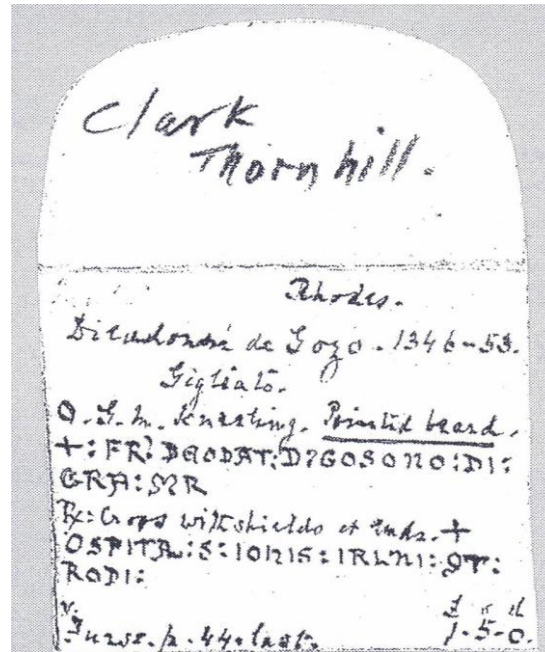 Clark
Thornhill.
Rhodes.
Dieudonné de Gozo. 1346-53.
Gigliato.
O. G. M. Kneeling. Pointed beard.
+: FR? DEODAT: D?GOSONO: DI:
GRA: M?R
R: Cross with shields at ends. +
OSPITAL: S: IONIS: IRLNI: QT:
RODI:
v.
Furse. p. 44. last.
£ s d
1-5-0.